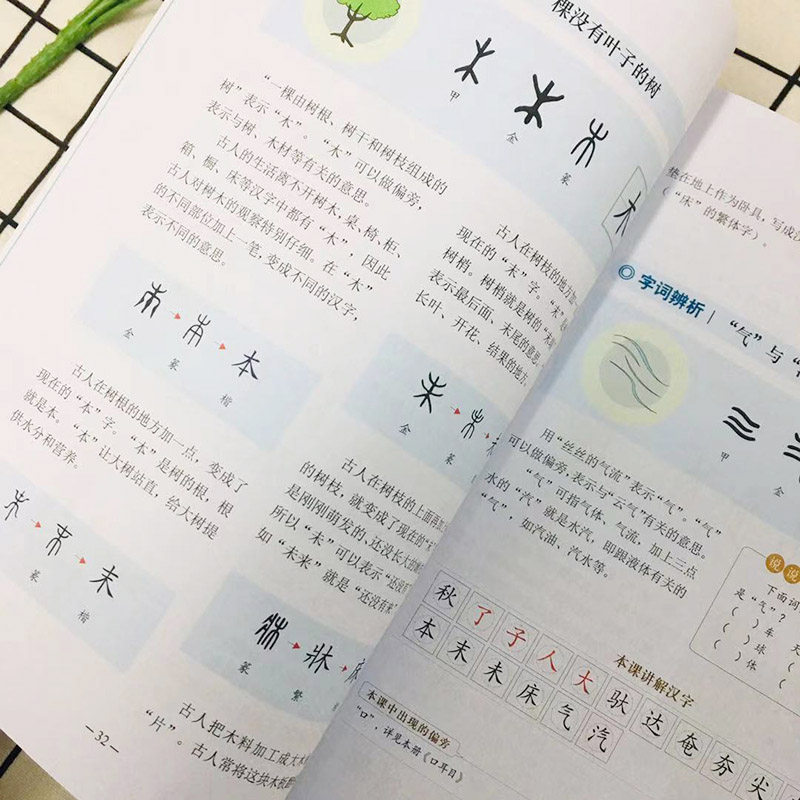 棵没有叶子的树
甲 金 篆
木
“一棵由树根、树干和树枝组成的
树”表示“木”。“木”可以做偏旁,
表示与树、木材等有关的意思。
古人的生活离不开树木,桌、椅、柜、
箱、橱、床等汉字中都有“木”,因此
古人对树木的观察特别仔细。在“木”
的不同部位加上一笔,变成不同的汉字,
表示不同的意思。
本
金 篆 楷
古人在树根的地方加一点,变成了
现在的“本”字。“本”是树的根,根
就是本。“本”让大树站直,给大树提
供水分和营养。
末
篆 楷
古人在树枝的地方加
现在的“末”字。“末”
树梢。树梢就是树的“末
表示最后面、末尾的意思。
长叶、开花、结果的地方。
金 篆
古人在树枝的上面再加
的树枝,就变成了现在的“未”
是刚刚萌发的,还没长大的
所以“未”可以表示“还没有
如“未来”就是“还没有来
牀
篆 繁
古人把木料加工成大木
“片”。古人常将这块木板
—32—
垫在地上作为卧具,写成
(“床”的繁体字)。
字词辨析
“气”与“
甲 金
用“丝丝的气流”表示“气”。“气”
可以做偏旁,表示与“云气”有关的意思。
“气”可指气体、气流,加上三点
水的“汽”就是水汽,即跟液体有关的
“气”,如汽油、汽水等。
说说
下面词
是“气”?
( )车 天
( )球
( )体
本课讲解汉字
秋了子人大驮达奄夯尖
本末未床气汽
本课中出现的偏旁
“口”,详见本册《口耳目》